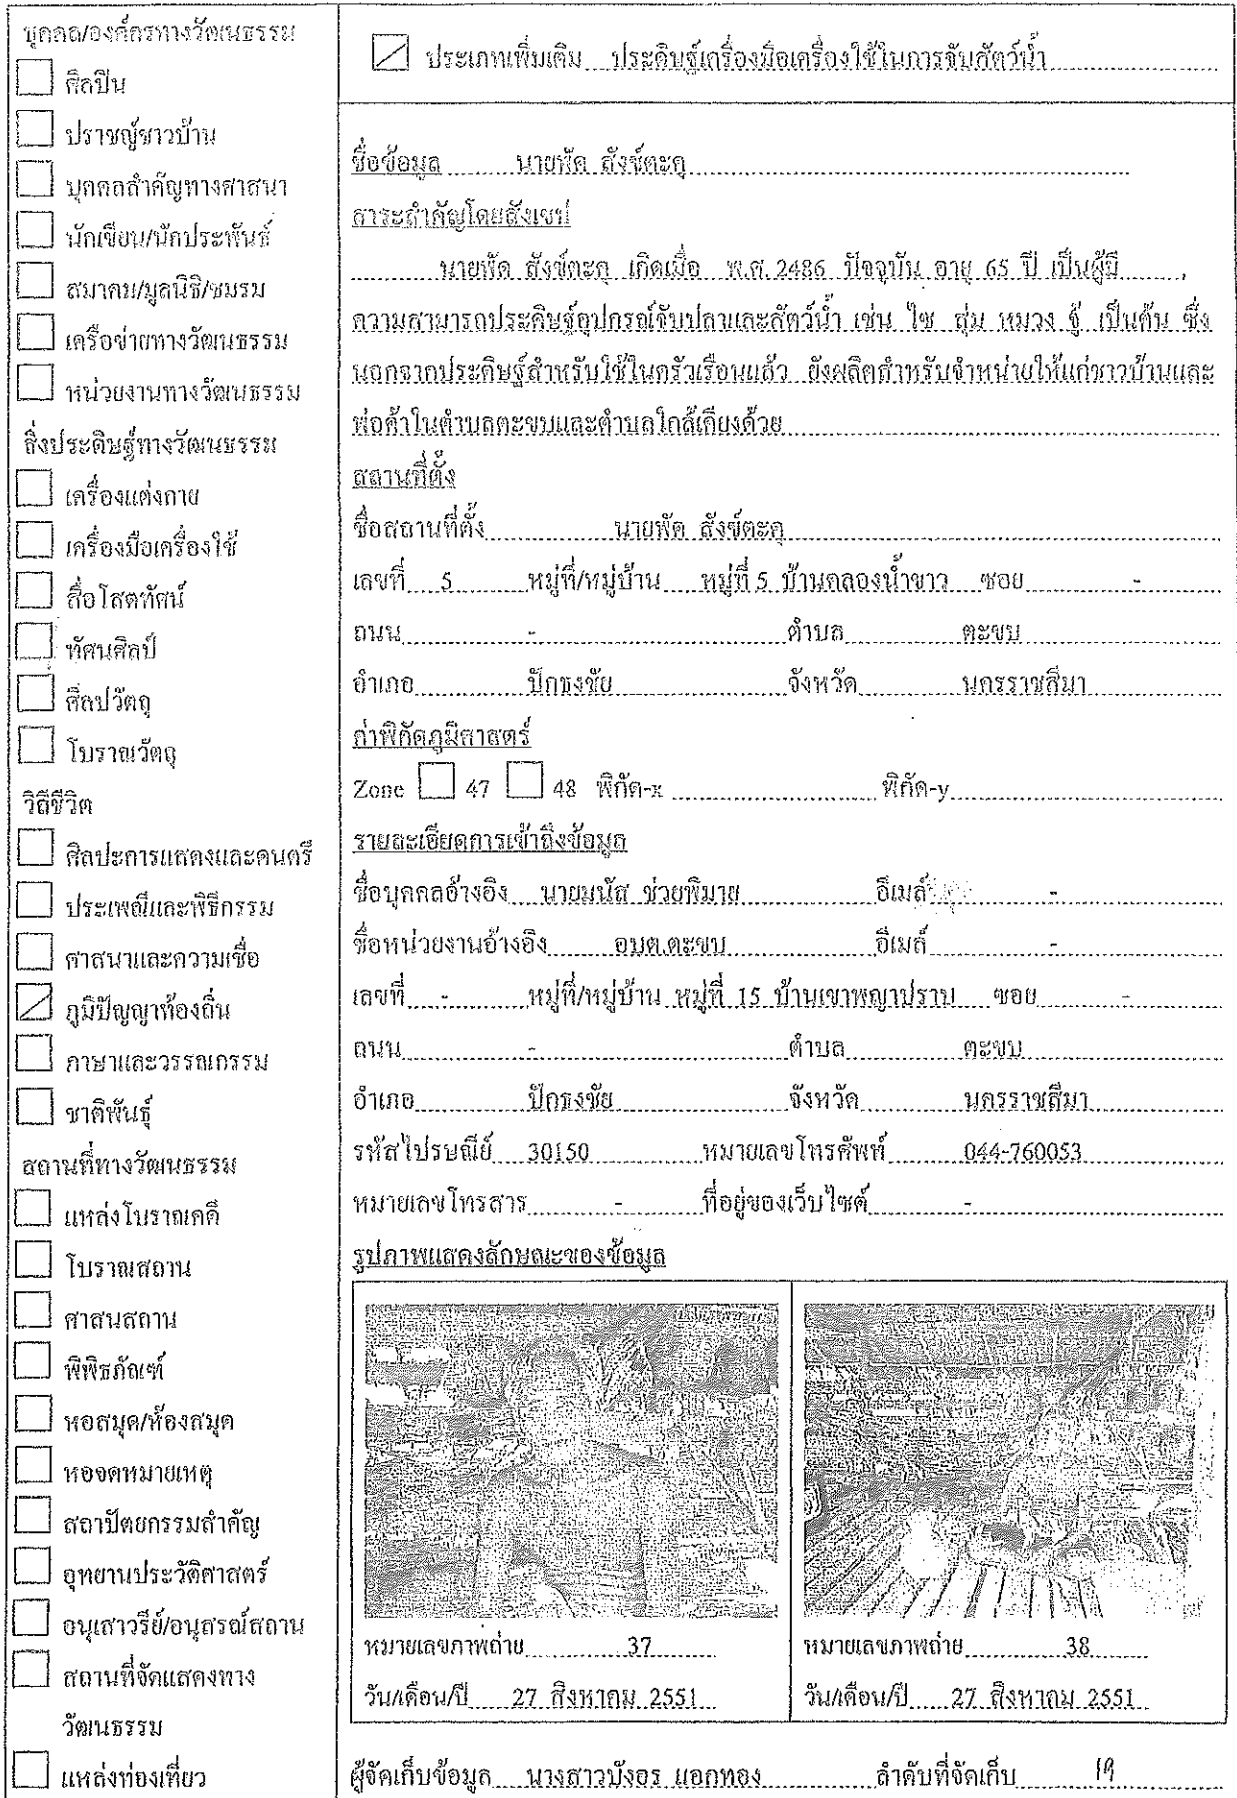 บุคคล/องค์กรทางวัฒนธรรม
ศิลปิน
ปราชญ์ชาวบ้าน
บุคคลสำคัญทางศาสนา
นักเขียน/นักประพันธ์
สมาคม/มูลนิธิ/ชมรม
เครือข่ายทางวัฒนธรรม
หน่วยงานทางวัฒนธรรม
สิ่งประดิษฐ์ทางวัฒนธรรม
เครื่องแต่งกาย
เครื่องมือเครื่องใช้
สื่อโสตทัศน์
ทัศนศิลป์
ศิลปวัตถุ
โบราณวัตถุ
วิถีชีวิต
ศิลปะการแสดงและดนตรี
ประเพณีและพิธีกรรม
ศาสนาและความเชื่อ
ภูมิปัญญาท้องถิ่น
ภาษาและวรรณกรรม
ชาติพันธุ์
สถานที่ทางวัฒนธรรม
แหล่งโบราณคดี
โบราณสถาน
ศาสนสถาน
พิพิธภัณฑ์
หอสมุด/ห้องสมุด
หอจดหมายเหตุ
สถาปัตยกรรมสำคัญ
อุทยานประวัติศาสตร์
อนุเสาวรีย์/อนุสรณ์สถาน
สถานที่จัดแสดงทาง
วัฒนธรรม
แหล่งท่องเที่ยว
ประเภทเพิ่มเติม ประดิษฐ์เครื่องมือเครื่องใช้ในการจับสัตว์น้ำ
ชื่อข้อมูล นายพัด สังข์ตะคุ
สาระสำคัญโดยสังเขป
นายพัด สังข์ตะคุ เกิดเมื่อ พ.ศ. 2486 ปัจจุบัน อายุ 65 ปี เป็นผู้มี
ความสามารถประดิษฐ์อุปกรณ์จับปลาและสัตว์น้ำ เช่น ไซ สุ่ม หมวง จู้ เป็นต้น ซึ่ง
นอกจากประดิษฐ์สำหรับใช้ในครัวเรือนแล้ว ยังผลิตสำหรับจำหน่ายให้แก่ชาวบ้านและ
พ่อค้าในตำบลตะขบและตำบลใกล้เคียงด้วย
สถานที่ตั้ง
ชื่อสถานที่ตั้ง นายพัด สังข์ตะคุ
เลขที่ 5 หมู่ที่/หมู่บ้าน หมู่ที่ 5 บ้านคลองน้ำขาว ซอย -
ถนน - ตำบล ตะขบ
อำเภอ ปักธงชัย จังหวัด นครราชสีมา
ค่าพิกัดภูมิศาสตร์
Zone 47 48 พิกัด-x พิกัด-y
รายละเอียดการเข้าถึงข้อมูล
ชื่อบุคคลอ้างอิง นายมนัส ช่วยพิมาย อีเมล์ -
ชื่อหน่วยงานอ้างอิง อบต.ตะขบ อีเมล์ -
เลขที่ - หมู่ที่/หมู่บ้าน หมู่ที่ 15 บ้านเขาพญาปราบ ซอย -
ถนน - ตำบล ตะขบ
อำเภอ ปักธงชัย จังหวัด นครราชสีมา
รหัสไปรษณีย์ 30150 หมายเลขโทรศัพท์ 044-760053
หมายเลขโทรสาร - ที่อยู่ของเว็บไซต์ -
รูปภาพแสดงลักษณะของข้อมูล
หมายเลขภาพถ่าย 37
วัน/เดือน/ปี 27 สิงหาคม 2551
หมายเลขภาพถ่าย 38
วัน/เดือน/ปี 27 สิงหาคม 2551
ผู้จัดเก็บข้อมูล นางสาวบังอร แอกทอง ลำดับที่จัดเก็บ